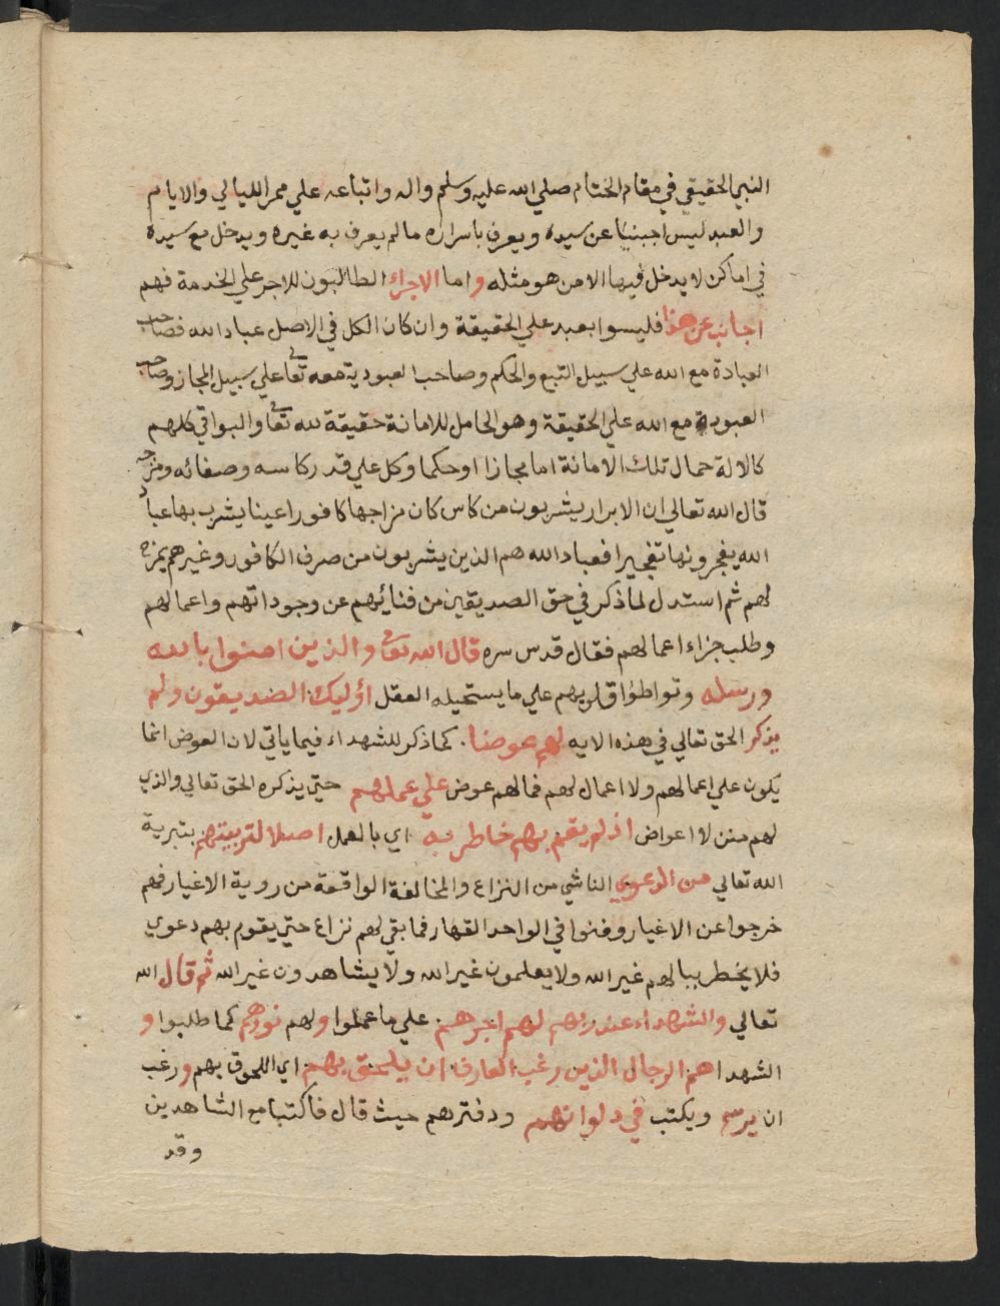 النبي الحقيقي في مقام الختام صلي الله عليه وسلم واله واتباعه علي ممر الليالي والايام
والعبد ليس اجنبيا عن سيده ويعرف باسراره ما لم يعرف به غيره ويدخل مع سيده
في اماكن لا يدخل فيها الا من هو مثله واما الاجراء الطالبون للاجر علي الخدمة فهم
اجانب عن هذا فليسوا بعبد علي الحقيقة وان كان الكل في الاصل عباد الله فصاحب
العبادة مع الله علي سبيل التبع والحكم وصاحب العبودية معه تعالى علي سبيل المجاز وصاحب
العبودة مع الله علي الحقيقة وهو الحامل للامانة حقيقة لله تعالى والبواقي كلهم
كالالة حمال تلك الامانة اما مجازا او حكما وكل علي قدر كاسه وصفائه ومزجه
قال الله تعالي ان الابرار يشربون من كاس كان مزاجها كافورا عينا يشرب بها عباد
الله يفجرونها تفجيرا فعباد الله هم الذين يشربون من صرف الكافور وغيرهم يمزج
لهم ثم استدل لما ذكر في حق الصديقين من فنائهم عن وجوداتهم واعمالهم
وطلب جزاء اعمالهم فقال قدس سره قال الله تعالى والذين امنوا بالله
ورسله وتواطؤا قلوبهم علي ما يستحيله العقل اؤليك الصديقون ولم
يذكر الحق تعالي في هذه الايه لهم عوضا. كما ذكر للشهداء فيما ياتي لان العوض انما
يكون علي اعمالهم ولا اعمال لهم فما لهم عوض علي عملهم حتي يذكره الحق تعالي والذي
لهم منن لا اعواض اذ لم يقم بهم خاطر به اي بالعمل اصلا لتربيتهم بتبرية
الله تعالي من الدعوي الناشي من النزاع والمخالفة الواقعة من روية الاغيار فهم
خرجوا عن الاغيار وفنوا في الواحد القهار فما بقي لهم نزاع حتي يقوم بهم دعوي
فلا يخطر ببالهم غير الله ولا يعلمون غير الله ولا يشاهدون غير الله ثم قال الله
تعالي والشهداء عند ربهم لهم اجرهم علي ما عملوا ولهم نورهم كما طلبوا و
الشهدا هم الرجال الذين رغب العارف ان يلحق بهم اي اللحوق بهم ورغب
ان يرسم ويكتب في ديوانهم ودفترهم حيث قال فاكتبنا مع الشاهدين
وقد